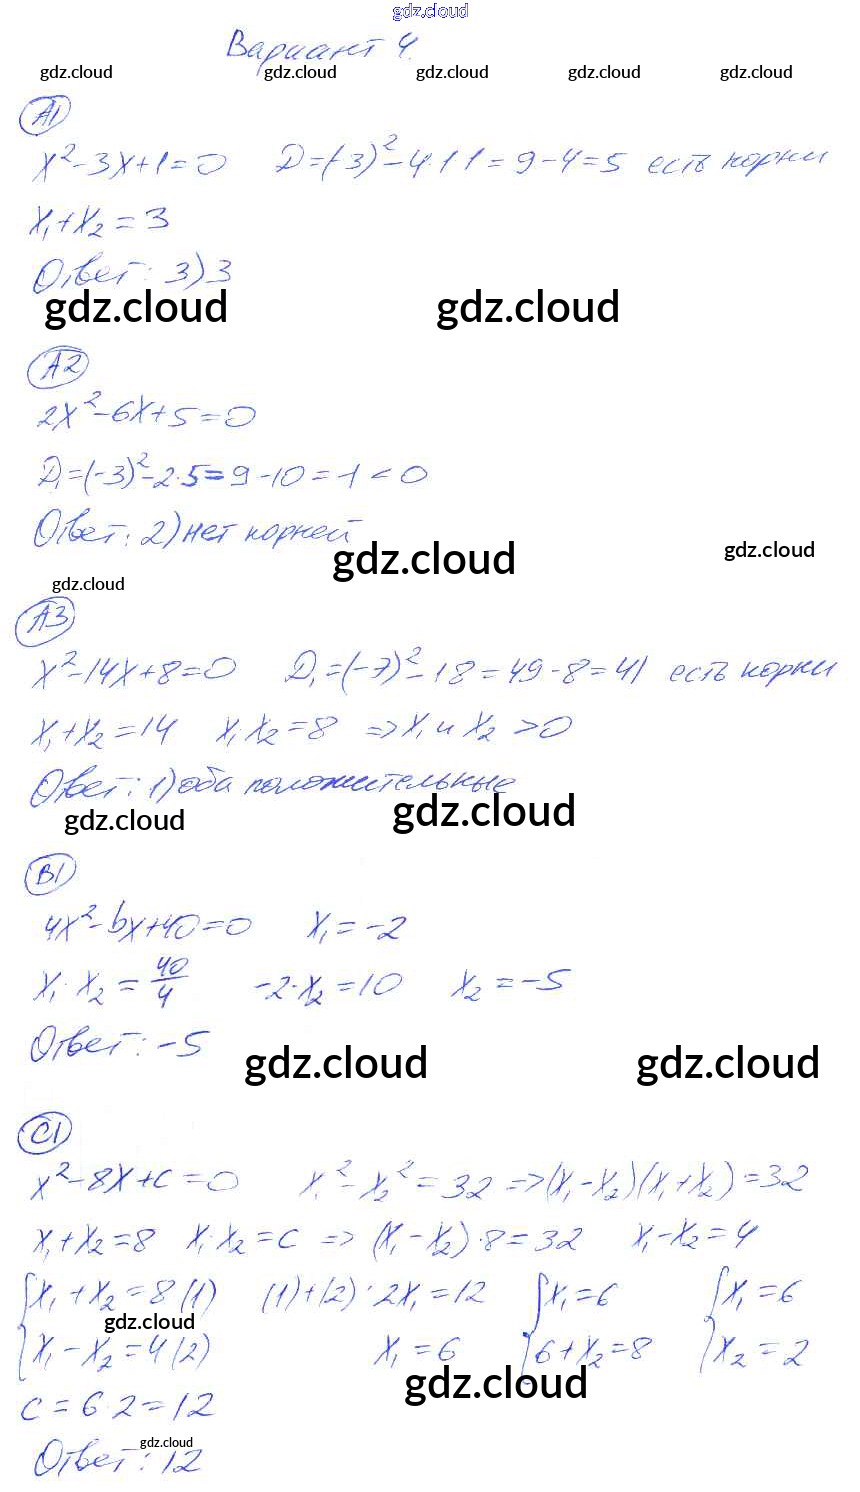 gdz.cloud
Вариант 4.
gdz.cloud gdz.cloud gdz.cloud gdz.cloud gdz.cloud
А1
x²-3x+1=0 D=(-3)²-4·1·1=9-4=5 есть корни
x₁+x₂=3
Ответ: 3)3
gdz.cloud gdz.cloud
А2
2x²-6x+5=0
D₁=(-3)²-2·5=9-10=-1<0
Ответ: 2)нет корней
gdz.cloud gdz.cloud
gdz.cloud
А3
x²-14x+8=0 D₁=(-7)²-1·8=49-8=41 есть корни
x₁+x₂=14 x₁·x₂=8 =>x₁ и x₂ >0
Ответ: 1)оба положительные
gdz.cloud gdz.cloud
В1
4x²-bx+40=0 x₁=-2
x₁·x₂=40/4 -2·x₂=10 x₂=-5
Ответ: -5
gdz.cloud gdz.cloud
С1
x²-8x+c=0 x₁²-x₂²=32=>(x₁-x₂)(x₁+x₂)=32
x₁+x₂=8 x₁·x₂=c => (x₁-x₂)·8=32 x₁-x₂=4
{x₁+x₂=8(1) (1)+(2): 2x₁=12 {x₁=6 {x₁=6
gdz.cloud
x₁-x₂=4(2) x₁=6 6+x₂=8 x₂=2
gdz.cloud
c=6·2=12
gdz.cloud
Ответ: 12